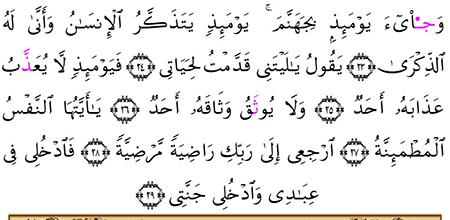 وَجِاْيٓءَ يَوْمَئِذٍۭ بِجَهَنَّمَ ۚ يَوْمَئِذٍ يَتَذَكَّرُ ٱلْإِنسَٰنُ وَأَنَّىٰ لَهُ
ٱلذِّكْرَىٰ ﴿٢٣﴾ يَقُولُ يَٰلَيْتَنِى قَدَّمْتُ لِحَيَاتِى ﴿٢٤﴾ فَيَوْمَئِذٍ لَّا يُعَذَّبُ
عَذَابَهُ أَحَدٌ ﴿٢٥﴾ وَلَا يُوثَقُ وَثَاقَهُ أَحَدٌ ﴿٢٦﴾ يَٰٓأَيَّتُهَا ٱلنَّفْسُ
ٱلْمُطْمَئِنَّةُ ﴿٢٧﴾ ٱرْجِعِى إِلَىٰ رَبِّكِ رَاضِيَةً مَّرْضِيَّةً ﴿٢٨﴾ فَٱدْخُلِى فِى
عِبَٰدِى وَٱدْخُلِى جَنَّتِى ﴿٢٩﴾